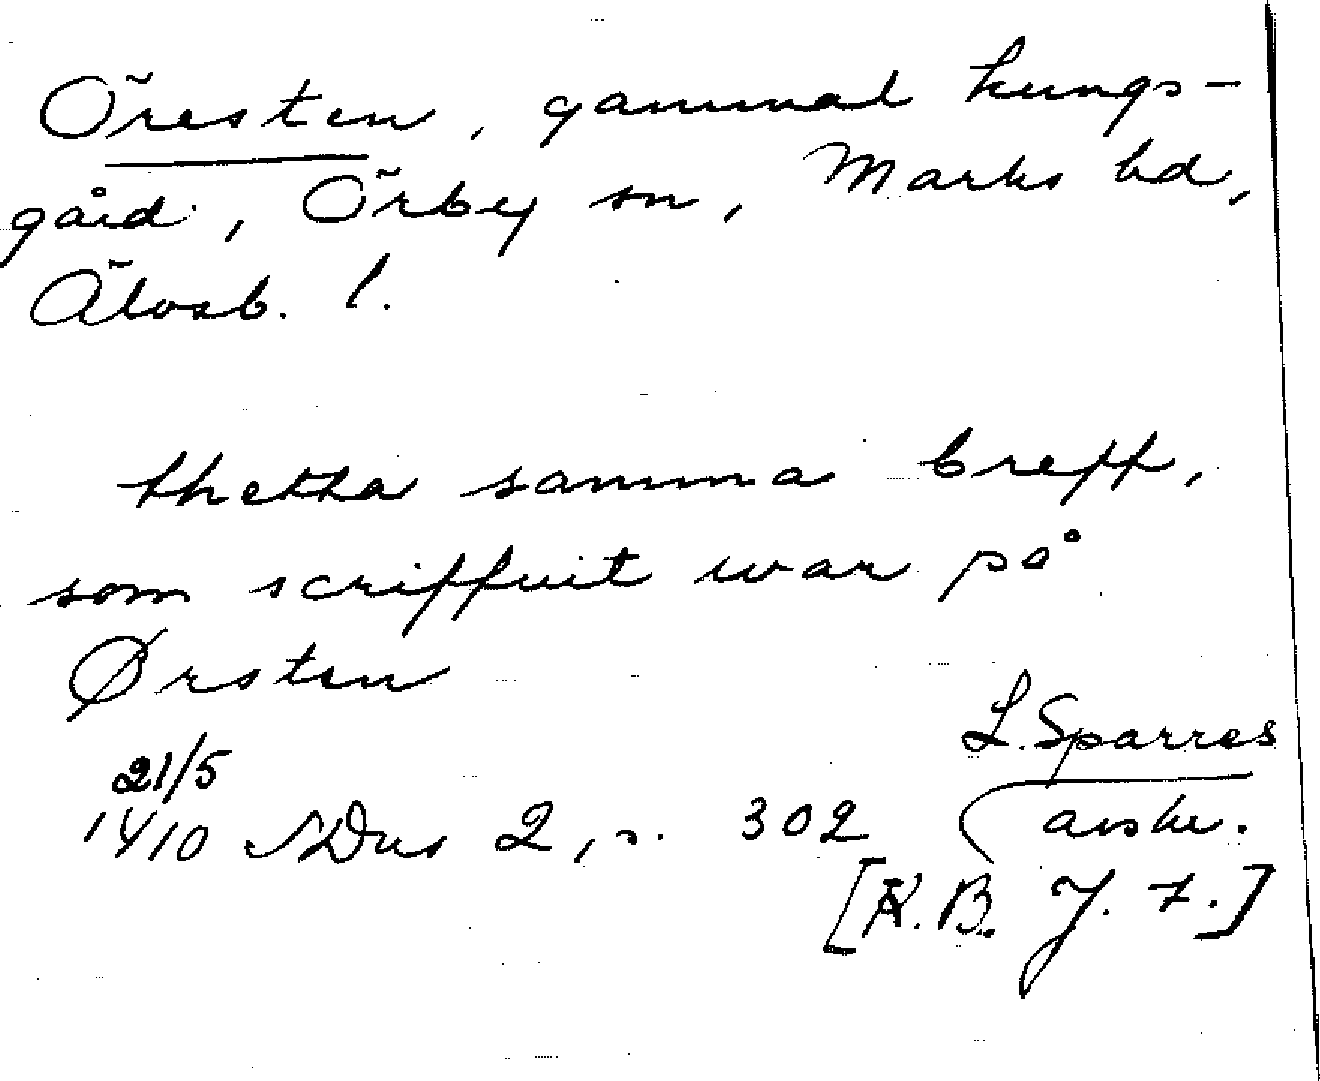 Öresten, gammal kungs-
gård, Örby sn, Marks hd,
Älvsb. l.
thetta samma breff,
som scriffuit war på
Ørsten
L. Sparres
21/5
1410 SDns 2, s. 302 avskr.
[K. B. J. 7.]